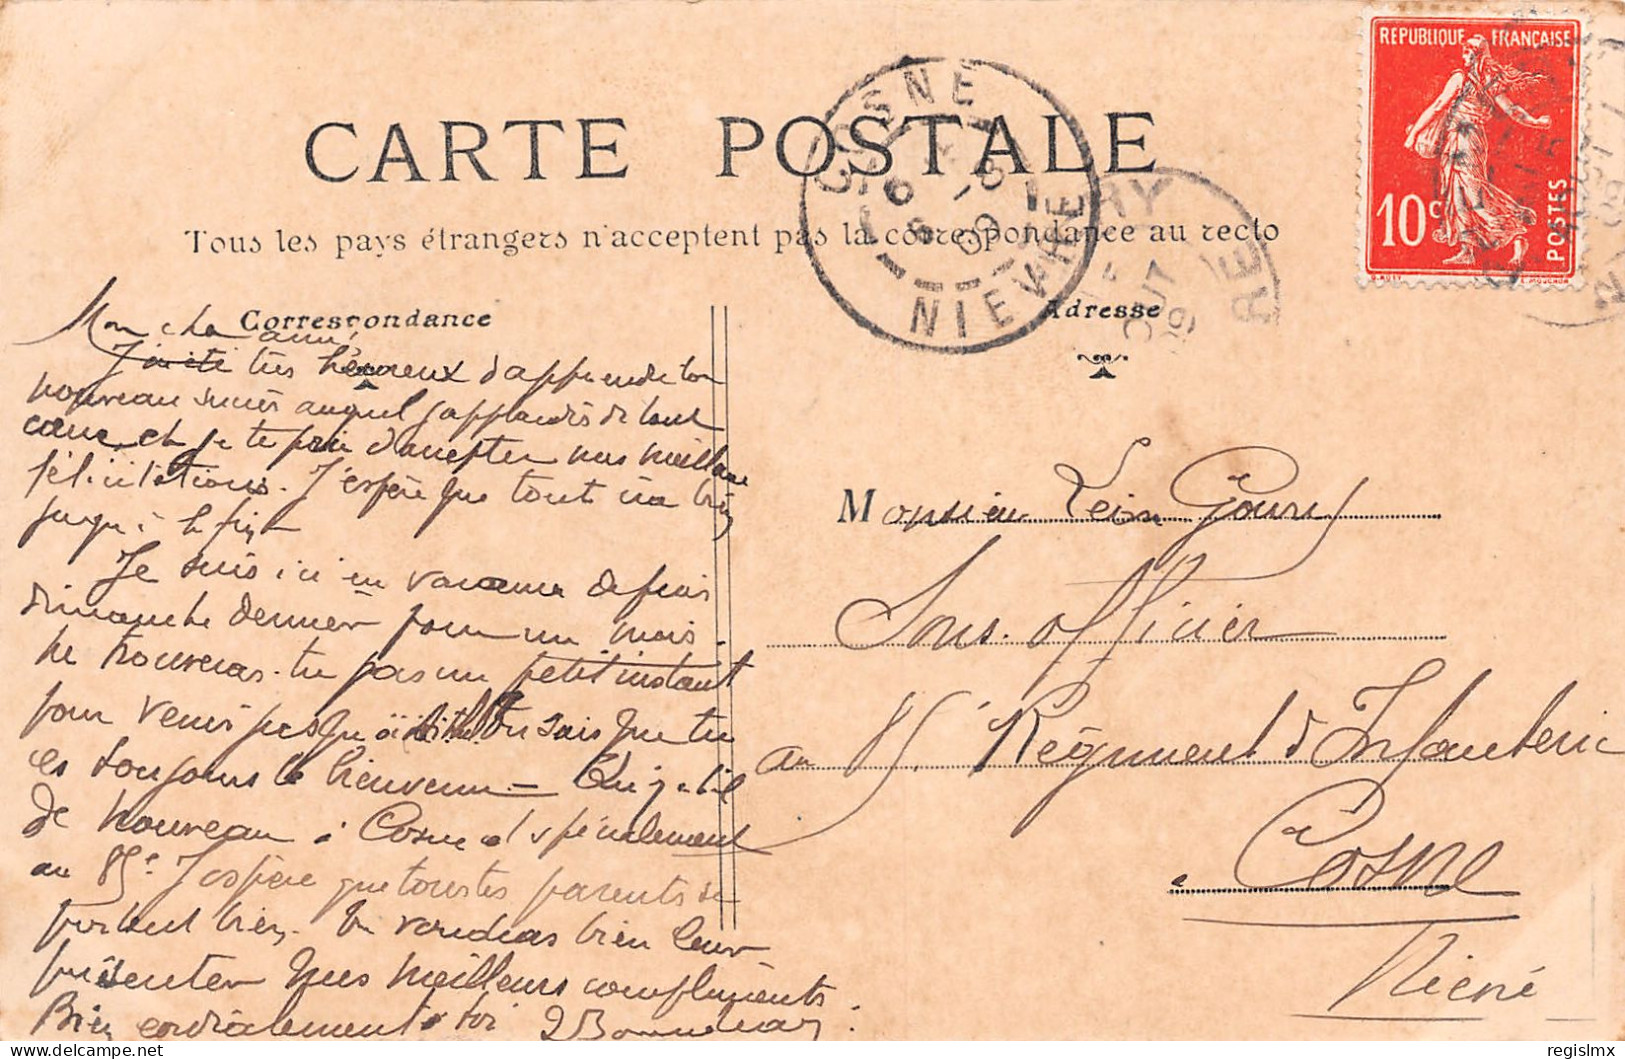 CARTE POSTALE
Tous les pays étrangers n'acceptent pas la correspondance au recto
Correspondance
Adresse
REPUBLIQUE FRANÇAISE
10c
POSTES
COSNE
NIEVRE
Mon cher ami,
J'ai été très heureux d'apprendre ton
nouveau succès auquel j'applaudis de tout
cœur, et je te prie d'accepter mes meilleures
félicitations. J'espère que tout ira bien
jusqu'à la fin.
Je suis ici en vacances depuis
dimanche dernier pour un mois.
Ne trouveras-tu pas un petit instant
pour venir jusqu'ici Tu sais que tu
es toujours le bienvenu – Qui y a-t-il
de nouveau à Cosne et spécialement
au 85e. J'espère que tous tes parents se
portent bien. Tu voudras bien leur
présenter mes meilleurs compliments.
Bien cordialement à toi
Monsieur Goury
Sous-officier
au 85e Régiment d'Infanterie
à Cosne
Nièvre
regislmx